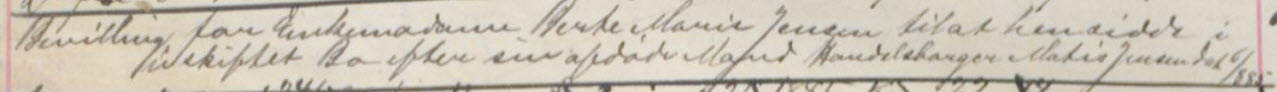 Bevilling for Enkemadame Berte Marie Jensen til at hensidde i
uskiftet Bo efter sin afdøde Mand Handelsborger Matis Jensen dat 6/